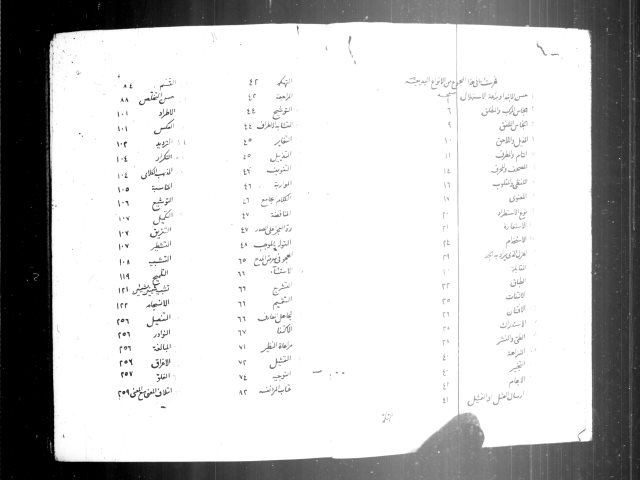 فهرست ما في هذا المجموع من الأنواع البديعية
حسن الابتداء وبراعة الاستهلال
الجناس المركب والمطلق ٦
الجناس الملفق ٩
المذيل واللاحق ١٠
التام والمطرف ١١
المصحف والمحرف ١٤
اللفظي والمقلوب ١٦
المعنوي ١٧
نوع الاستطراد ٢٠
الاستعارة ٢١
الاستخدام ٢٤
الهزل الذي يراد به الجد ٢٩
المقابلة
الطباق ٢٢
الالتفات ٢٥
الافتنان ٢٦
الاستدراك
الطي والنشر ٢٨
النزاهة ٤٠
التخيير
الابهام ٤٢
ارسال المثل او التمثيل ٤١
التهكم ٤٢
المراجعة ٤٢
التوشيح ٤٤
تشابه الاطراف ٤٤
التغاير ٤٥
التذييل ٤٥
التفويف ٤٦
المواربة ٤٦
الكلام بجامع ٤٦
المناقضة ٤٧
رد العجز على الصدر ٤٧
القول بالموجب ٤٨
الهجو في معرض المدح ٦٥
الاستثناء ٦٦
التشريع ٦٦
التتميم ٦٦
تجاهل العارف ٦٦
الاكتفا ٦٧
مراعاة النظير ٧١
التمثيل ٧٢
التوجيه ٧٤
عتاب المرء نفسه ٨٢
القسم ٨٤
حسن التخلص ٨٨
الاطراد ١٠١
العكس ١٠١
الترديد ١٠٢
التكرار ١٠٤
المذهب الكلامي ١٠٤
المناسبة ١٠٥
التوشيع ١٠٦
التكميل ١٠٧
التفريق ١٠٧
التشطير ١٠٧
التشبيه ١٠٨
التلميح ١١٩
تشبيه شيئين بشيئين ١٢١
الانسجام ١٢٢
التفصيل ٢٥٦
النوادر ٢٥٦
المبالغة ٢٥٦
الاغراق ٢٥٦
الغلو ٢٥٧
ائتلاف المعنى مع المعنى ٢٥٩